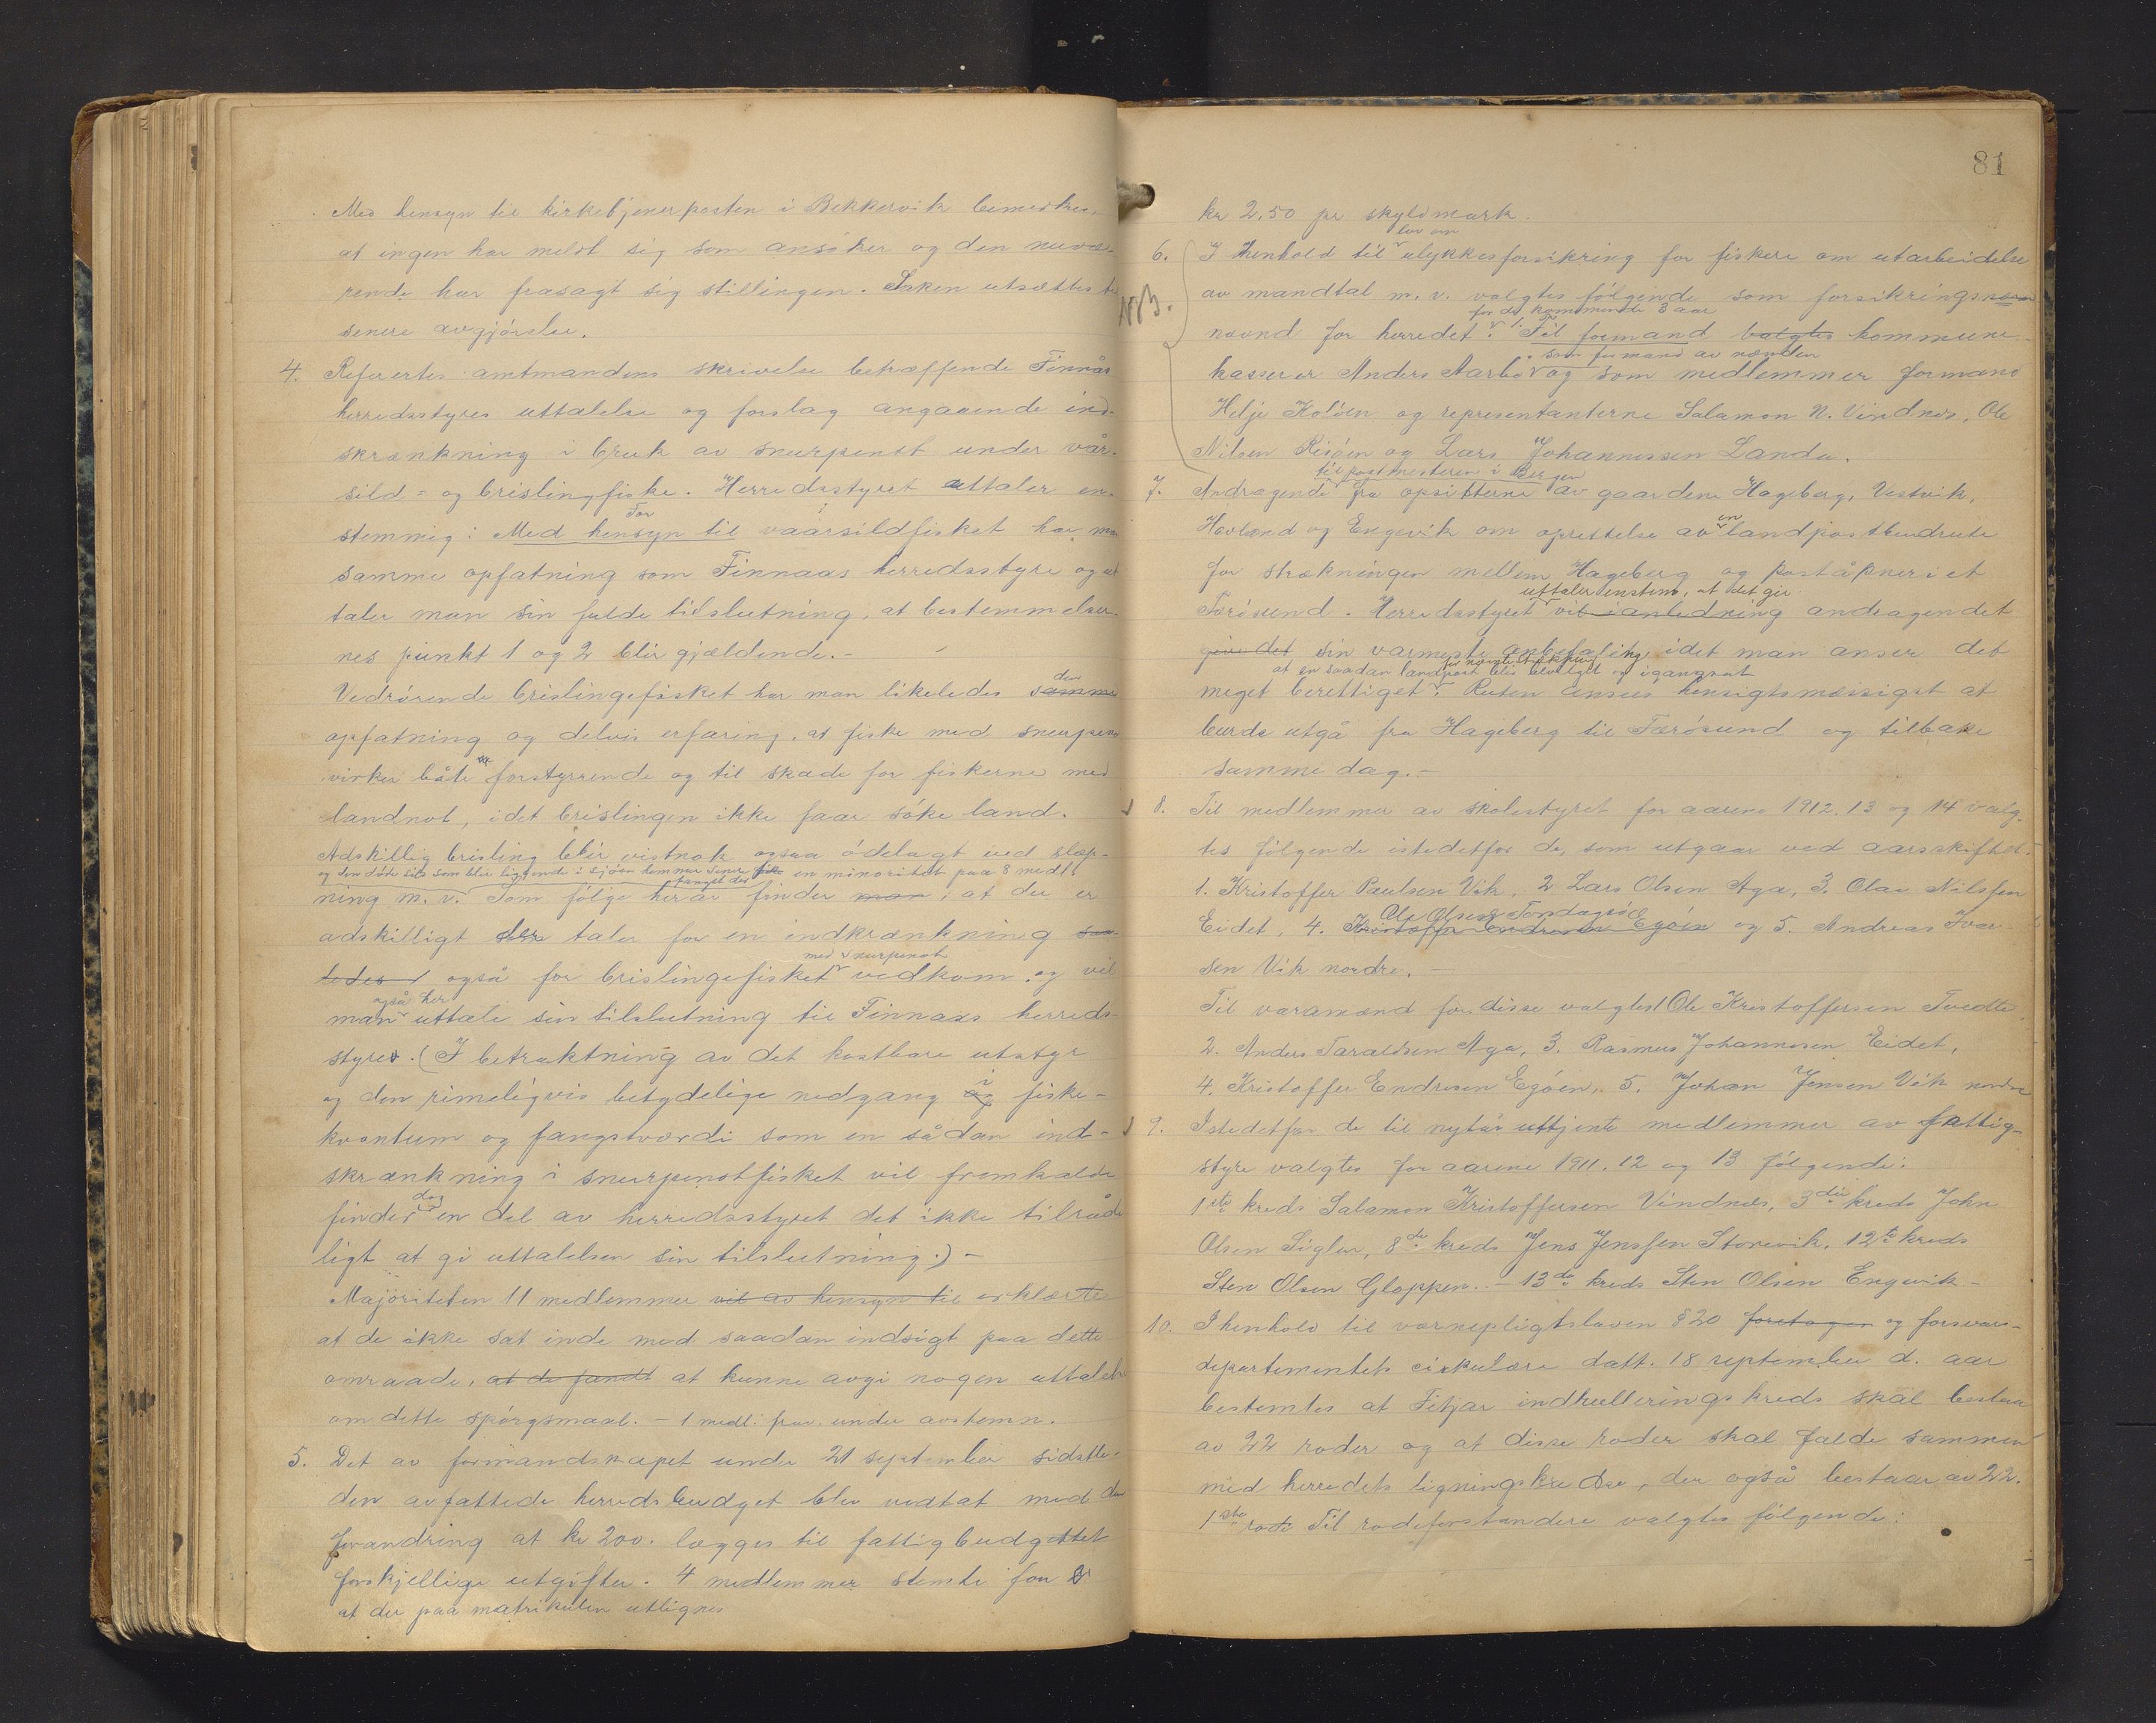 Med hensyn til kirketjenerposten i Bekkervik bemerkes,
at ingen har meldt sig som ansöker og den nuvæ-
rende har frasagt sig stillingen. Saken utsættes til
senere avgjörelse.
4. Refertes amtmandens skrivelse betræffende Finnås
herredsstyres uttalelse og forslag angaaende ind-
skrænkning i bruk av snurpenot under vår-
sild- og brislingfiske. Herredsstyret uttaler en-
For
stemmig: Med hensyn til vaarsildfisket har man
samme opfatning som Finnaas herredsstyre og ut
taler man sin fulde tilslutning, at bestemmelser-
nes punkt 1 og 2 blir gjældende.-
den
Vedrörende brislingefisket har man likeledes samme
opfatning og delvis erfaring, at fiske med snurpenot
virker båte forstyrrende og til skade for fiskerne med
landnot, idet brislingen ikke faar söke land.
Adskillig brisling blir vistnok ogsaa ödelagt ved slæp-
og den döde sild som blir liggende i sjöen kommer senere en minoritet paa 8 medl.
ning m. v. Som fölge herav finder man, at der er
adskilligt der taler for en indkrænkning saa-
med snurpenot
ledes også for brislingefisket vedkom. og vil
også her
man uttale sin tilslutning til Finnaas herreds-
styre. (I betraktning av det kostbare utstyr
i
og den rimeligvis betydelige nedgang og fiske-
kvantum og fangstværdi som en sådan ind-
skrænkning i snurpenotfisket vil fremkalde
dog
finder en del av herredsstyret det ikke tilråde
ligt at gi uttalelsen sin tilslutning.) -
Majöriteten 11 medlemmer vil av hensyn til erklærte
at de ikke sat inde med saadan indsigt paa dette
omraade, at de fandt at kunne avgi nogen uttalelse
om dette spörgsmaal. - 1 medl. frav. under avstemn.
5. Det av formandskapet under 21 september sidstle-
den avfattede herredsbudget blev vedtat med den
forandring at kr 200. lægges til fattigbudgettet
forskjellige utgifter. 4 medlemmer stemte for
at der paa matrikulen utlignes
81
kr 2,50 pr skyldmark.
lov om
6. I henhold til ulykkesforsikring for fiskere om utarbeidelse
NB.
av mandtal m. v. valgtes fölgende som forsikrings
for de kommende 3 aar
nævnd for herredet: 1. Til formand valgtes kommune-
som formand av nævnden
kasserer Anders Aarbö og som medlemmer formand
Helje Koloen og representanterne Salamon N. Vindnes, Ole
Nilsen Risöen og Lars Johannessen Landa.
til postmesteren i Bergen
7. Andragende fra opsitterne av gaardene Hageberg, Vestvik,
en
Hovland og Engevik om oprettelse av landpostbudrute
for strækningen mellem Hageberg og poståpneriet
uttaler enstem. at det gir
Færösund. Herredsstyret vil i anledning andragendet
give det sin varmeste anbefaling idet man anser det
at en saadan landpost blir bevilget og igangsat
meget berettiget. Ruten ansees hensigtsmæssigst at
burde utgå fra Hageberg til Færösund og tilbake
samme dag.-
8. Til medlemmer av skolestyret for aarene 1912. 13 og 14 valg-
tes fölgende istedetfor de, som utgaar ved aarsskiftet.
1. Kristoffer Paulsen Vik, 2 Lars Olsen Aga, 3. Olai Nilssen
Ole Olsen Torsdagsöe
Eidet, 4. Kristoffer Endresen Egöen og 5. Andreas Ivar
sen Vik nordre. -
Til varamænd for disse valgtes 1 Ole Kristoffersen Tvedte,
2. Anders Taraldsen Aga, 3. Rasmus Johannesen Eidet,
4. Kristoffer Endresen Egöen, 5. Johan Jensen Vik nordre
9. Istedetfor de til nytår uttjente medlemmer av fattig-
styre valgtes for aarene 1911. 12 og 13 fölgende:
1ste kreds Salamon Kristoffersen Vindnæs, 3die kreds John
Olsen Sigler, 8de kreds Jens Jenssen Storevik, 12te kreds
Sten Olsen Gloppen. - 13de kreds Sten Olsen Engevik -
10. I henhold til værnepligtsloven § 20 foretoges og forsvars-
departementets cirkulære datt. 18 september d. aar
bestemtes at Fitjar indrulleringskreds skal bestaa
av 22 roder og at disse roder skal falde sammen
med herredets ligningskredse, der også bestaar av 22.
1ste rode Til rodeforstandere valgtes fölgende: